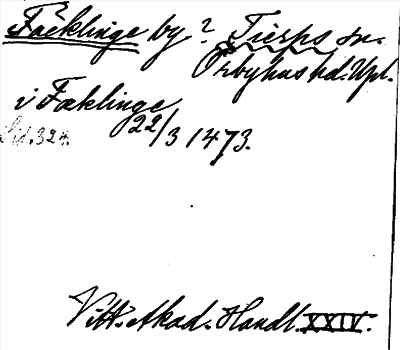 Fäcklinge by? Tierps sn.
Örbyhus hd. Upl.
i Fæklinge
22/3 1473.
Sid. 324.
Vitt. Akad. Handl. XXIV.